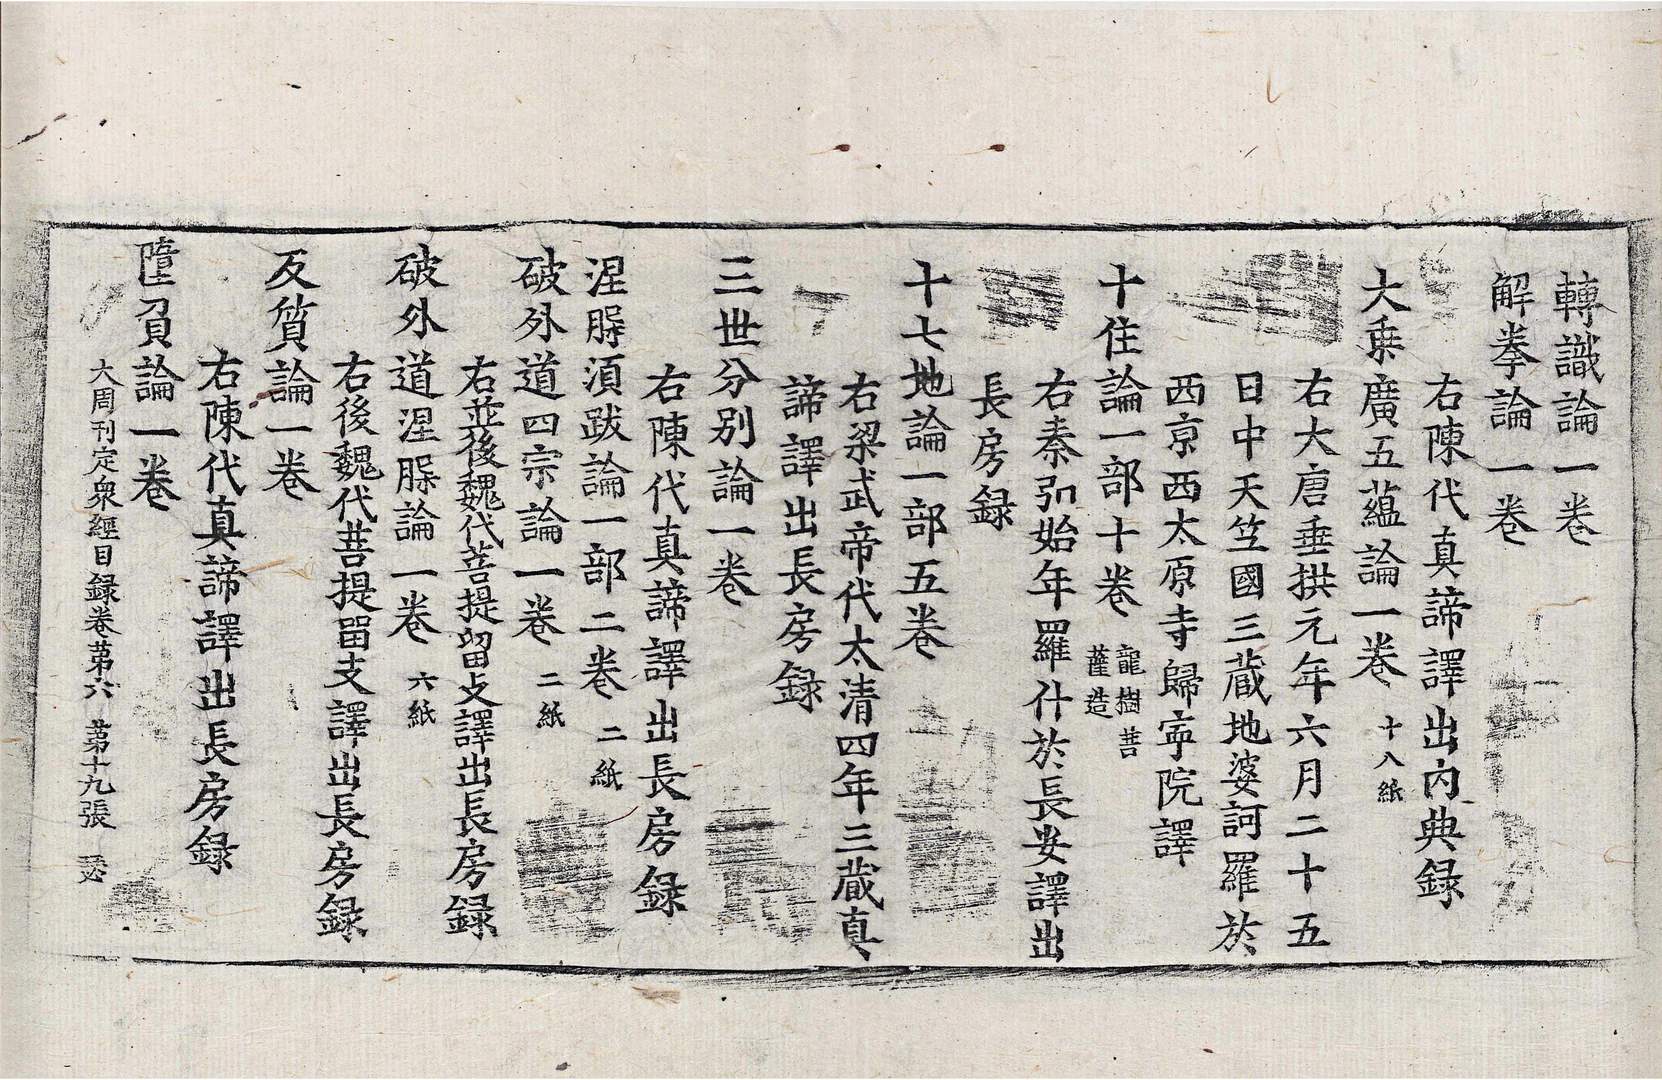 轉識論一卷
解拳論一卷
右陳代真諦譯出內典録
大乗廣五蘊論一卷 十八紙
右大唐垂拱元年六月二十五
日中天竺國三蔵地婆訶羅於
西京西太原寺歸寜院譯
十住論一部十卷 龍樹菩
薩造
右秦弘始年羅什於長安譯出
長房録
十七地論一部五卷
右梁武帝代太清四年三蔵真
諦譯出長房録
三世分別論一卷
右陳代真諦譯出長房録
涅脲湏跋論一部二卷 二紙
破外道四宗論一卷 二紙
右並後魏代菩提留支譯出長房録
破外道涅脲論一卷 六紙
右後魏代菩提畱支譯出長房録
反質論一卷
右陳代真諦譯出長房録
墮負論一卷
大周刊定衆經目録卷苐六 苐十九張